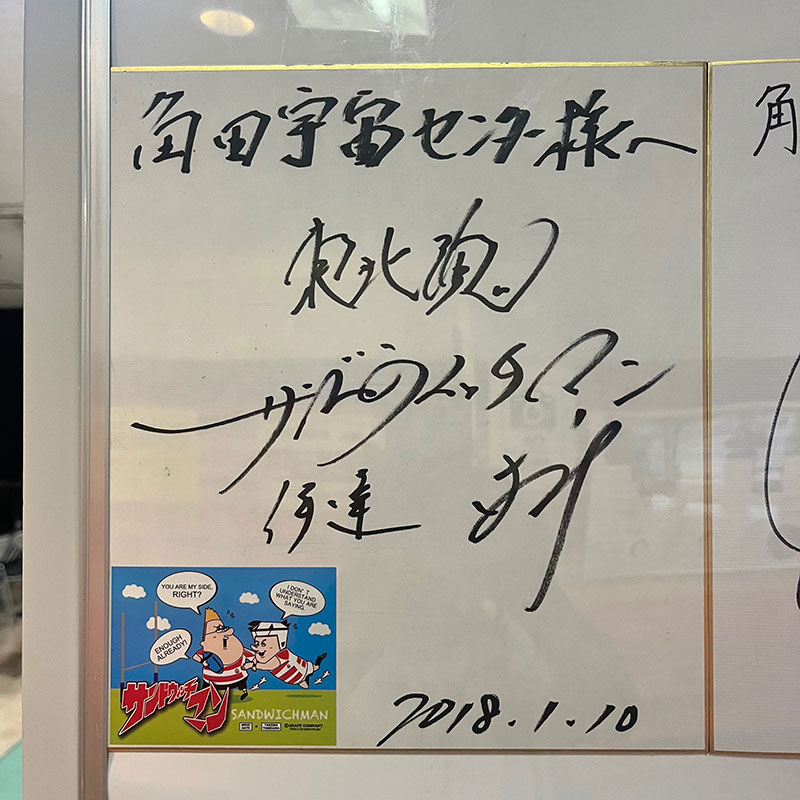 角田宇宙センター様へ
東北魂
サンドウィッチマン
伊達
2018.1.10
YOU ARE MY SIDE,
RIGHT?
I DON'T
UNDERSTAND
WHAT YOU ARE
SAYING.
ENOUGH
ALREADY!
サンドウィッチマン
SANDWICHMAN
©GRAPE COMPANY
角